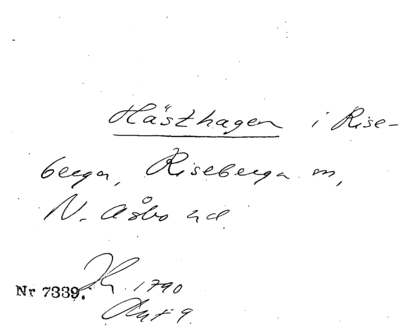 Hästhagen i Rise-
berga, Riseberga sn,
N. Åsbo hd.
1790
Nr 7339.
Akt 9.